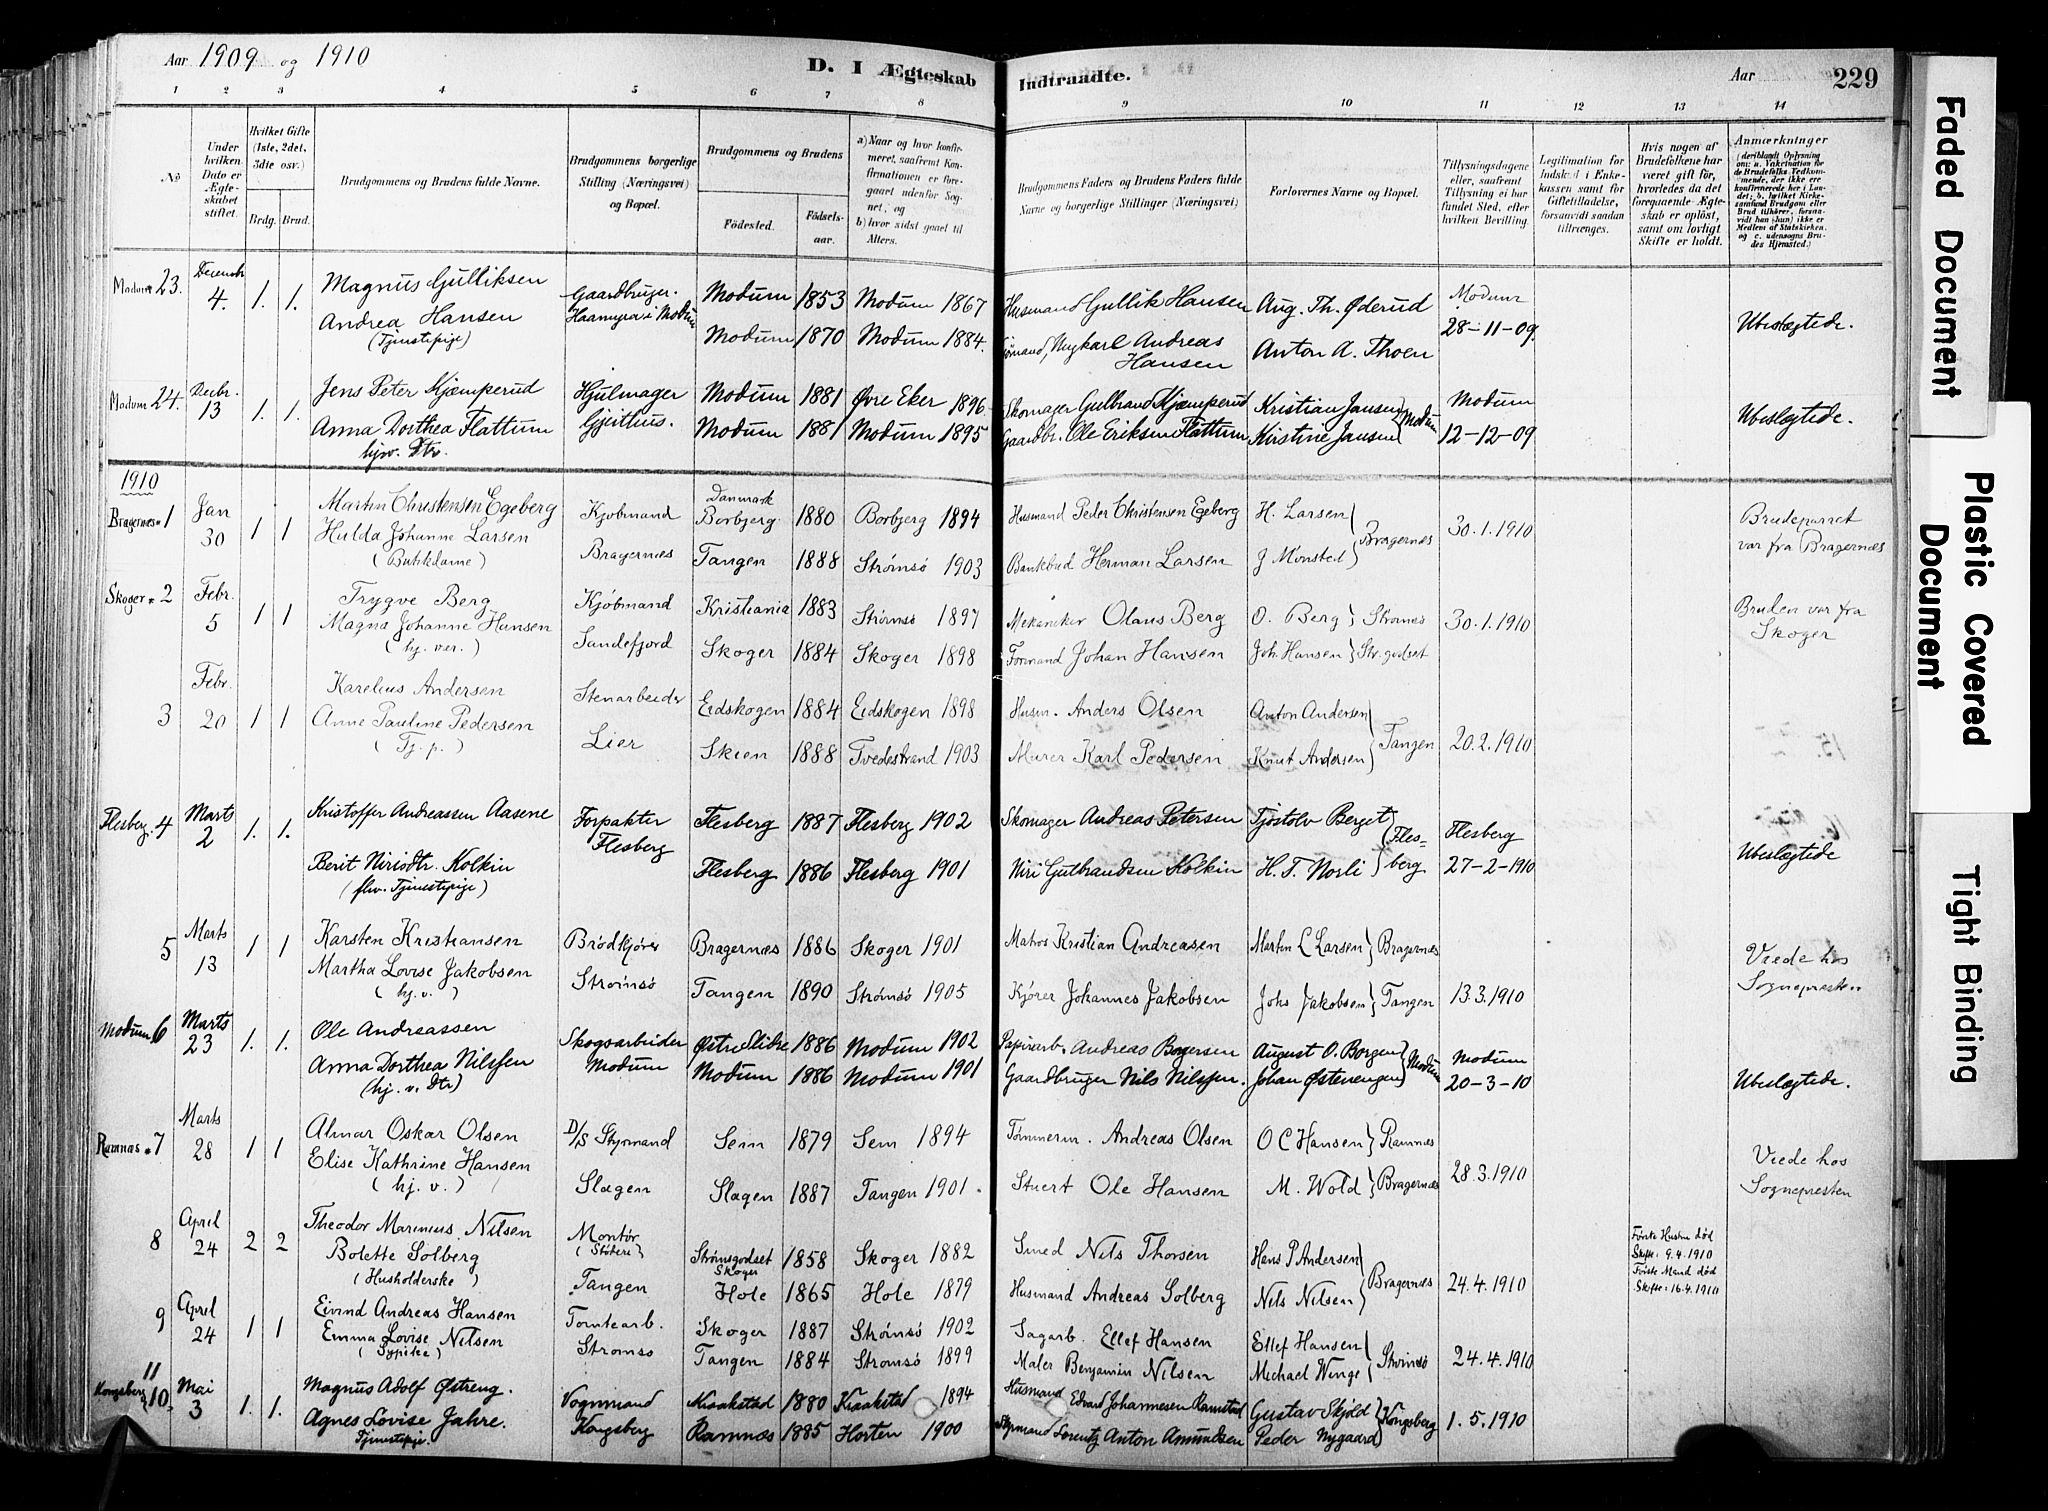 Aar 1909 og 1910
D. I Ægteskab Indtraadte.
Aar 229
1 2 3 4 5 6 7 8 9 10 11 12 13 14
No
Under hvilken Dato er Ægteskabet stiftet.
Hvilket Gifte (1ste, 2det, 3die osv.)
Brdg. Brud.
Brudgommens og Brudens fulde Navne.
Brudgommens borgerlige Stilling (Næringsvei) og Bopæl.
Brudgommens og Brudens
Fødested. Fødselsaar.
a) Naar og hvor konfirmeret, saafremt Konfirmationen er foregaaet udenfor Sognet, og
b) hvor sidst gaaet til Alters.
Brudgommens Faders og Brudens Faders fulde Navne og borgerlige Stillinger (Næringsvei)
Forlovernes Navne og Bopæl.
Tillysningsdagene eller, saafremt Tillysning ei har fundet Sted, efter hvilken Bevilling.
Legitimation for Indskud i Enkekassen samt for Giftetilladelse, forsaavidt saadan tiltrænges.
Hvis nogen af Brudefolkene har været gift før, hvorledes da det foregaaende Ægteskab er opløst, samt om lovligt Skifte er holdt.
Anmærkninger
Modum 23. Decemb 4. 1. 1. Magnus Gulliksen Gaardbruger. Modum 1853 Modum 1867 Husmand Gullik Hansen Aug. Th. Øderud Modum
Andrea Hansen Modum 1870 Modum 1884. Andreas Hansen Anton A. Thoen 28-11-09. Ubeslægtede.
(Tjenestepige)
Modum 24. Decbr. 13 1. 1. Jens Peter Kjæmperud Hjulmager Modum 1881 Øvre Eker 1896 Skomager Gulbrand Kjæmperud Kristian Jansen Modum Modum
Anna Dorthea Flattum Gjethus. Modum 1881 Modum 1895 Gaardbr. Ole Eriksen Flattum Kristine Jansen 12-12-09 Ubeslægtede.
hjv. Dtr.
1910
Bragernes 1 Jan 30 1 1 Martin Christensen Egeberg Kjøbmand Danmark Borbjerg 1880 Borbjerg 1894 Husmand Peder Christensen Egeberg H. Larsen Bragernæs 30.1.1910 Brudeparret
Hulda Johanne Larsen Bragernæs Tangen 1888 Strømsø 1903 Bankbud Herman Larsen J Mønsted var fra Bragernæs
(Butikdame)
Skoger 2 Febr. 5 1 1 Trygve Berg Kjøbmand Kristiania 1883 Strømsø 1897 Mekaniker Olaus Berg O. Berg Strømsø 30.1.1910 Bruden var fra
Magna Johanne Hansen Sandefjord Skoger 1884 Skoger 1898 Formand Johan Hansen Joh. Hansen Str.godset Skoger
(hj. vær.)
3 Febr. 20 1 1 Karelius Andersen Stenarbeider Eidskogen 1884 Eidskogen 1898 Husm. Anders Olsen Anton Andersen Tangen 20.2.1910
Anne Pauline Pedersen Lier Skien 1888 Tvedestrand 1903 Murer Karl Pedersen Knut Andersen
(Tj. p.)
Flesberg. 4 Marts 2 1. 1. Kristoffer Andreassen Aasene Forpakter Flesberg 1887 Flesberg 1902 Skomager Andreas Petersen Tjøstolv Berget Flesberg Flesberg
Flesberg
Berit Nirisdtr. Kolkin Flesberg 1886 Flesberg 1901 Niri Gulbrandsen Kolkin H. T. Norli 27-2-1910 Ubeslægtede
(Tjenestepige)
5 Marts 13 1 1 Karsten Kristiansen Brødkjører Bragernæs 1886 Skoger 1901 Matros Kristian Andreasen Martin L Larsen Bragernæs Viede hos
Martha Lovise Jakobsen Strømsø Tangen 1890 Strømsø 1905 Kjører Johannes Jakobsen Johs Jakobsen Tangen 13.3.1910 Sognepresten
(hj. v.)
Modum 6 Marts 23 1. 1. Ole Andreassen Skogsarbeider Østre Slidre 1886 Modum 1902 Papirarb. Andreas Borgersen August O. Borgen Modum Modum
Anna Dorthea Nilssen Modum Modum 1886 Modum 1901 Gaardbruger Nils Nilssen. Johan Østenengen 20-3-10 Ubeslægtede.
(hj. v. Dtr)
Ramnæs 7 Marts 28 1 1 Almar Oskar Olsen D/S Styrmand Sem 1879 Sem 1894 Tømmerm. Andreas Olsen O C Hansen Ramnæs Viede hos
Elise Kathrine Hansen Slagen Slagen 1887 Tangen 1901. Stuert Ole Hansen M. Wold Bragernæs 28.3.1910 Sognepresten
(hj. v.)
8 April 24 2 2 Theodor Marinius Nilsen Montør (Støberi) Strømsgodset Skoger 1858 Skoger 1882 Smed Nils Thorsen Hans P Andersen Bragernæs 24.4.1910 Første Hustru død Skifte: 9.4.1910
Bolette Solberg Tangen Hole 1865 Hole 1879 Husmand Andreas Solberg Nils Nilsen Første Mand død Skifte: 16.4.1910
(Husholderske)
9 April 24 1 1 Eivind Andreas Hansen Tomtearb. Skoger 1887 Strømsø 1902 Sagarb. Ellef Hansen Ellef Hansen Strømsø 24.4.1910
Emma Lovise Nilsen Strømsø Tangen 1884 Strømsø 1899 Maler Benjamin Nilsen Michael Winge
(Sypike)
11
Kongsberg 10. Mai 3 1. 1. Magnus Adolf Østreng. Vognmand Kraakstad 1880 Kraakstad 1894 Husmand Edvard Johannesen Ramstad Gustav Skjøld Kongsberg 1.5.1910
Agnes Lovise Jahre. Kongsberg Ramnæs 1885 Horten 1900 Styrmand Lorentz Anton Amundsen Peder Nygaard
Tjenestepige.
Faded Document
Plastic Covered Document
Tight Binding